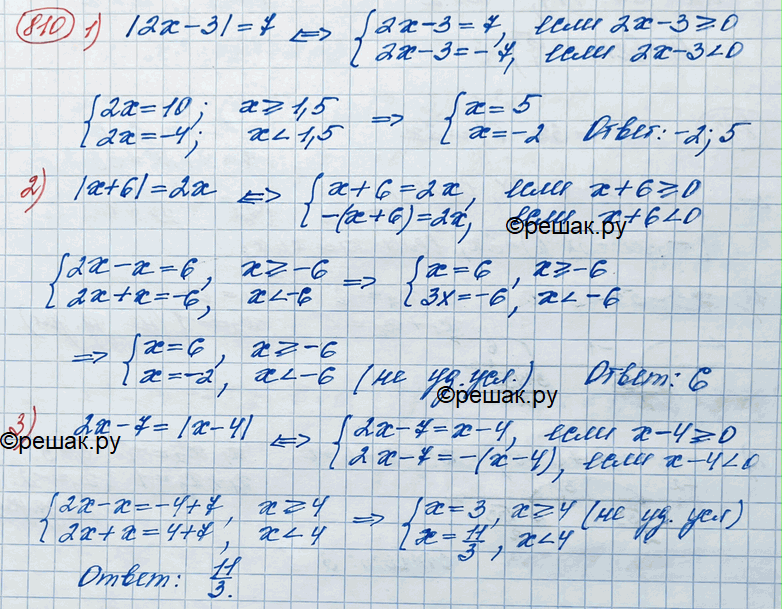 810 1) |2x-3|=7 <=> { 2x-3=7, если 2x-3≥0
2x-3=-7, если 2x-3<0
{ 2x=10; x≥1,5 => { x=5
2x=-4; x<1,5 x=-2 Ответ: -2; 5
2) |x+6|=2x <=> { x+6=2x, если x+6≥0
-(x+6)=2x, если x+6<0
©решак.ру
{ 2x-x=6, x≥-6 => { x=6, x≥-6
2x+x=-6, x<-6 3x=-6, x<-6
=> { x=6, x≥-6
x=-2, x<-6 (не уд. усл.) Ответ: 6
©решак.ру
3) 2x-7=|x-4| <=> { 2x-7=x-4, если x-4≥0
©решак.ру
2x-7=-(x-4), если x-4<0
{ 2x-x=-4+7, x≥4 => { x=3, x≥4 (не уд. усл)
2x+x=4+7, x<4 x=11/3, x<4
Ответ: 11/3.